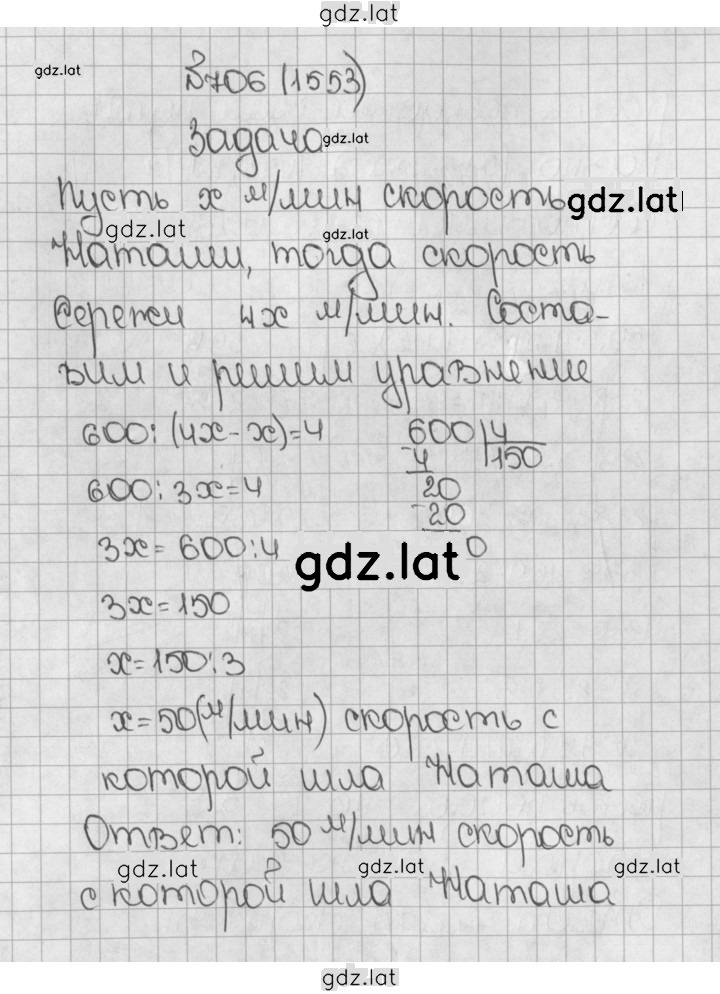 gdz.lat
gdz.lat
№706 (1553)
Задача gdz.lat
Пусть х м/мин скорость gdz.lat
gdz.lat gdz.lat
Наташи, тогда скорость
Сережи 4х м/мин. Соста-
вим и решим уравнение
600:(4х-х)=4 600 4
-4 150
600:3х=4 20
-20
3х=600:4 0
gdz.lat
3х=150
х=150:3
х=50(м/мин) скорость с
которой шла Наташа
Ответ: 50 м/мин скорость
gdz.lat gdz.lat gdz.lat
с которой шла Наташа
gdz.lat